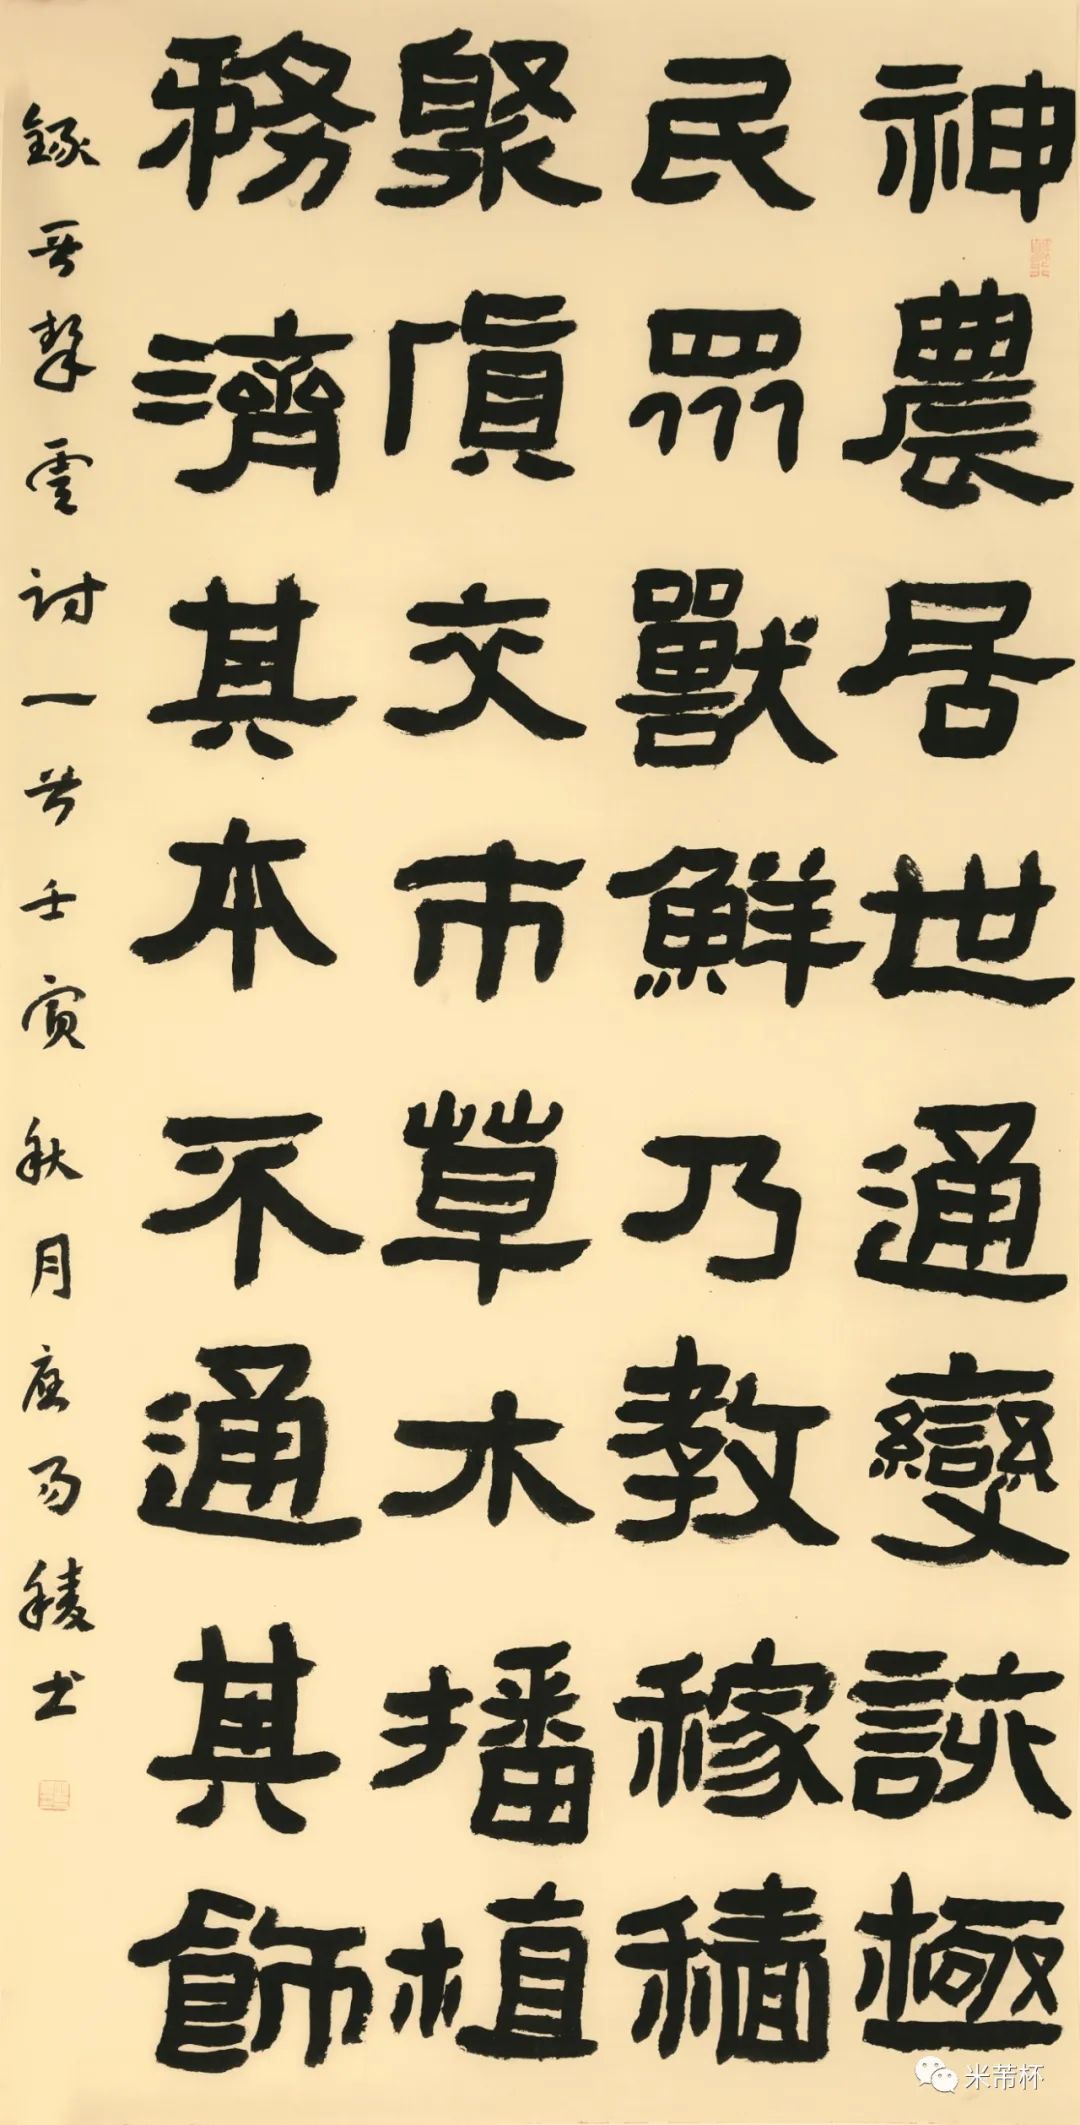 神農居世通變該極
民眾獸鮮乃教稼穡
聚貨交市草木播植
務濟其本不通其飾
錄晋摯虞詩一首壬寅秋月應易稜书
米芾杯